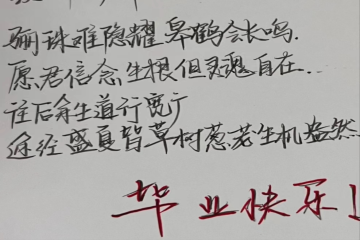 骊珠难隐耀 皋鹤会长鸣.
愿君信念生根但灵魂自在...
往后余生道行宽广
途经盛夏皆草树葱茏生机盎然
毕业快乐!